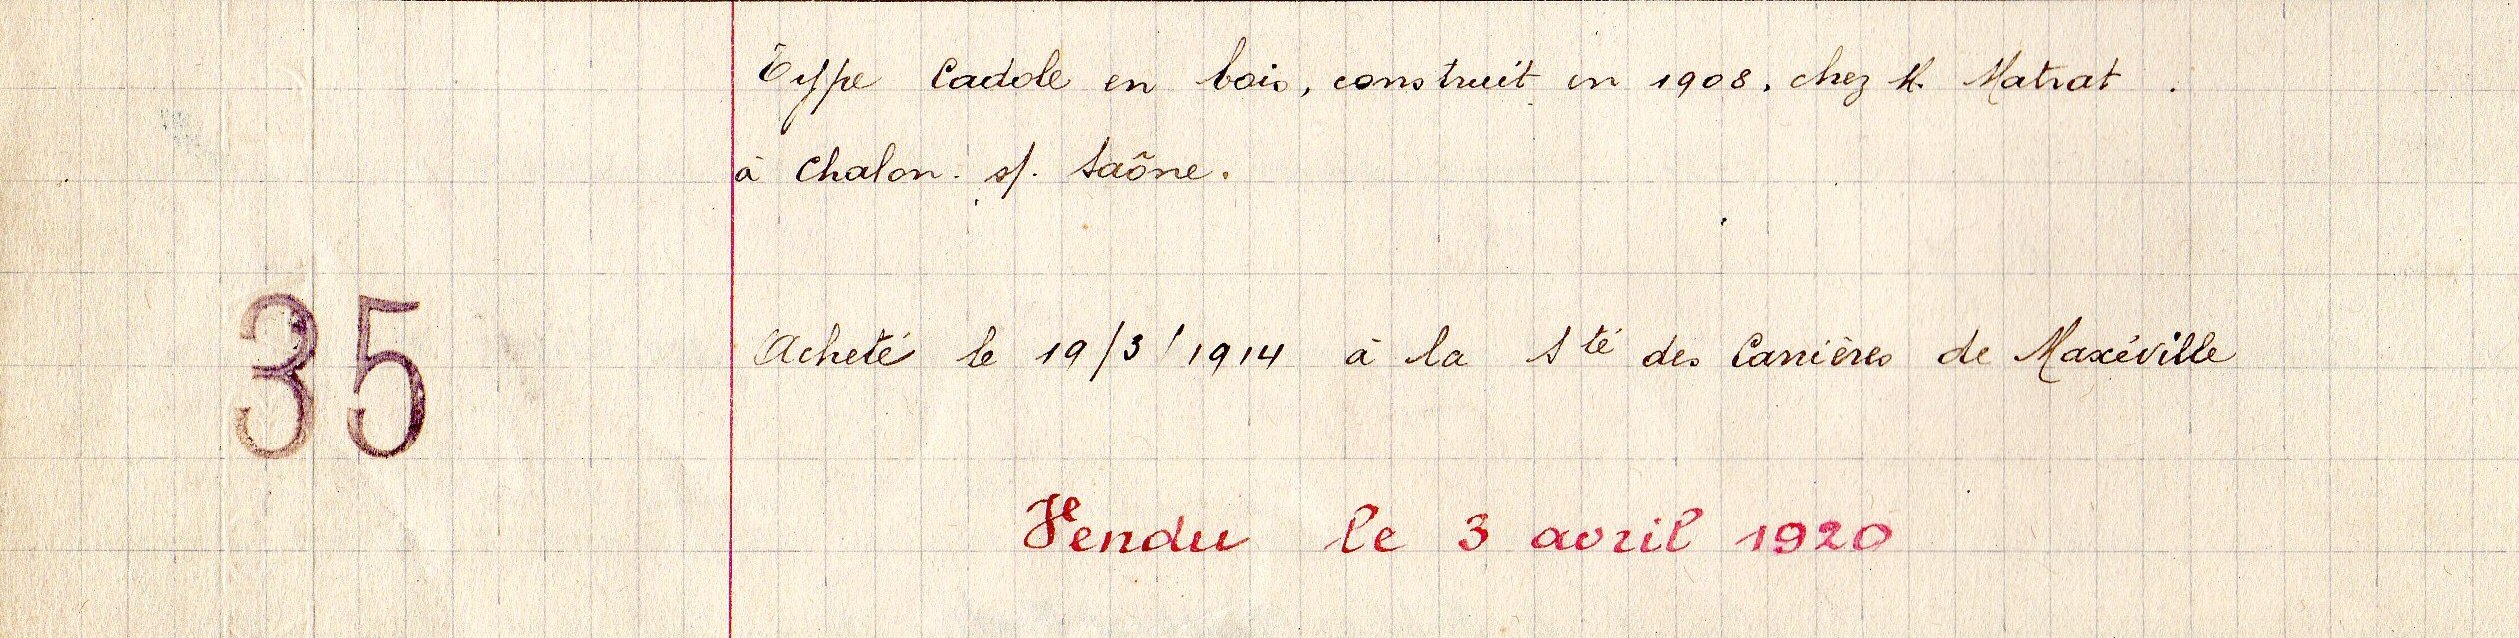 Type Cadole en bois, construit en 1908, chez M. Matrat.
à Chalon. s/. Saône.
35
Acheté le 19/3/1914 à la Sté des Carrières de Maxéville
Vendu le 3 avril 1920